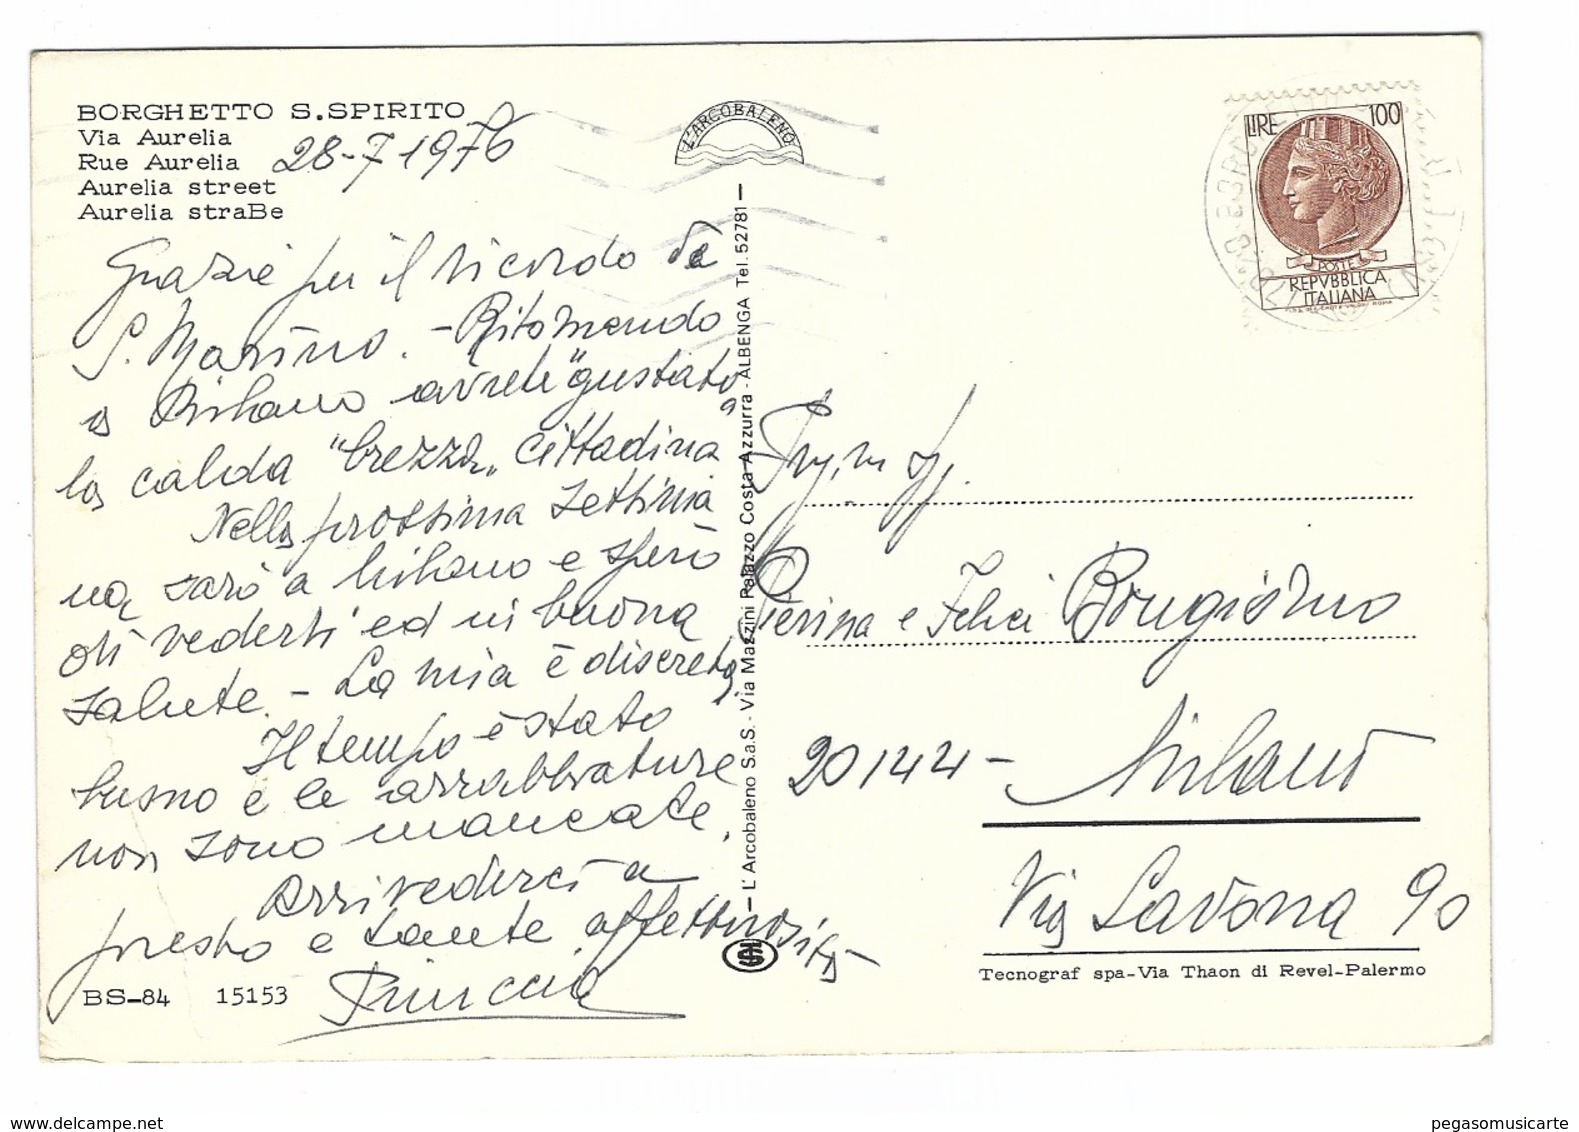 BORGHETTO S.SPIRITO
Via Aurelia
Rue Aurelia
Aurelia street
Aurelia straBe
28-7 1976
Grazie per il ricordo da
S. Marino. - Ritornando
a Milano avrete "gustato"
la calda "brezza" cittadina
Nella prossima settima
na sarò a Milano e spero
di vederti ed in buona
salute. - La mia è discreta.
Il tempo è stato
buono e le arrabbiature
non sono mancate.
Arrivederci a
presto e tante affettuosità
BS-84 15153
L'ARCOBALENO
L'Arcobaleno S.a.S. - Via Mazzini Palazzo Costa Azzurra - ALBENGA Tel. 52781
LIRE 100
POSTE
REPVBBLICA
ITALIANA
Pierina e Felice Bongiorno
20144 - Milano
Via Savona 90
Tecnograf spa-Via Thaon di Revel-Palermo
www.delcampe.net
pegasomusicarte